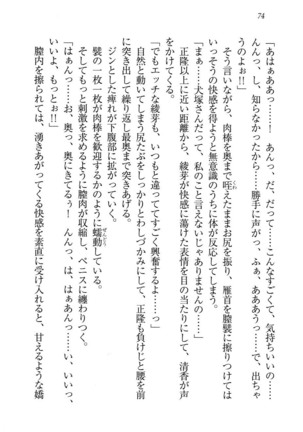 74
「あはぁんっ……！　あんっ、だ、だって……こんなすごくて、気持ちいいの……
んんんっ、し、知らなかったから……勝手に声が、ふぁ、あああうっ……で、出ちゃ
うっ……」
そう言いながら、肉棒を奥まで咥えたままお尻を振り、雁首を膣襞に擦りつけては
いっそうの快感を得ようと無意識のうちに体が反応してしまう。
「まぁ……犬塚さんだって、私のこと言えないじゃありませんの……」
正隆以上に近い距離から、綾芽が快感に蕩けた表情を目の当たりにして、清香が声
をかけてくる。
「でもエッチな綾芽も、いつもと違ってすごく興奮するよ……っ」
自然と動いてしまう尻たぶをしっかりとわしづかみにして、正隆も負けじと腰を前
に突き出して繰り返し最奥まで突きあげる。
ジンとした痺れが下腹部に拡がっていく。
襞の一枚一枚が肉棒を歓迎するかのように蠕動している。
もっと刺激を求めるように膣肉が収縮し、ペニスに纏わりつく。
「はぁんっ……お、奥っ、奥にきてるっ！　んんっ、は、はぁあんっ……い、いい、
いいよ、もっとぉっ！」
膣内を擦られては、湧きあがってくる快感を素直に受け入れると、甘えるような嬌